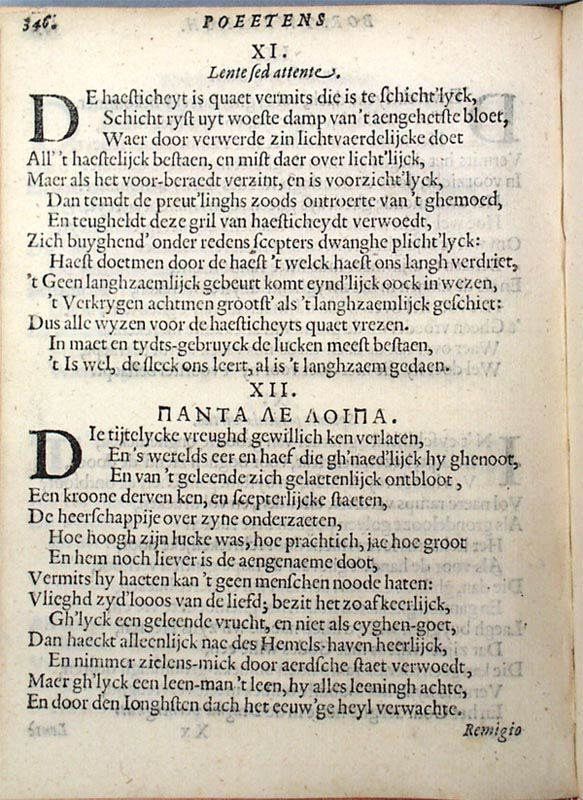 346. POEETENS
XI.
Lente sed attente.
DE haesticheyt is quaet vermits die is te schicht'lyck,
Schicht ryst uyt woeste damp van 't aengehetste bloet,
Waer door verwerde zin lichtvaerdelijcke doet
All' 't haestelijck bestaen, en mist daer over licht'lijck,
Maer als het voor-beraedt verzint, en is voorzicht'lyck,
Dan temdt de preut'linghs zoods ontroerte van 't ghemoed,
En teugheldt deze gril van haesticheydt verwoedt,
Zich buyghend' onder redens scepters dwanghe plicht'lyck:
Haest doetmen door de haest 't welck haest ons langh verdriet,
't Geen langhzaemlijck gebeurt komt eynd'lijck oock in wezen,
't Verkrygen achtmen grootst' als 't langhzaemlijck geschiet:
Dus alle wyzen voor de haesticheyts quaet vrezen.
In maet en tydts-gebruyck de lucken meest bestaen,
't Is wel, de sleck ons leert, al is 't langhzaem gedaen.
XII.
ΠΑΝΤΑ ΛΕ ΛΟΙΠΑ.
DIe tijtelycke vreughd gewillich ken verlaten,
En 's werelds eer en haef die gh'naed'lijck hy ghenoot,
En van 't geleende zich gelaetenlijck ontbloot,
Een kroone derven ken, en scepterlijcke staeten,
De heerschappije over zyne onderzaeten,
Hoe hoogh zijn lucke was, hoe prachtich, jae hoe groot
En hem noch liever is de aengenaeme doot,
Vermits hy haeten kan 't geen menschen noode haten:
Vlieghd zyd'looos van de liefd; bezit het zo afkeerlijck,
Gh'lyck een geleende vrucht, en niet als eyghen-goet,
Dan haeckt alleenlijck nae des Hemels-haven heerlijck,
En nimmer zielens-mick door aerdsche staet verwoedt,
Maer gh'lyck een leen-man 't leen, hy alles leeningh achte,
En door den Ionghsten dach het eeuw'ge heyl verwachte.
Remigio